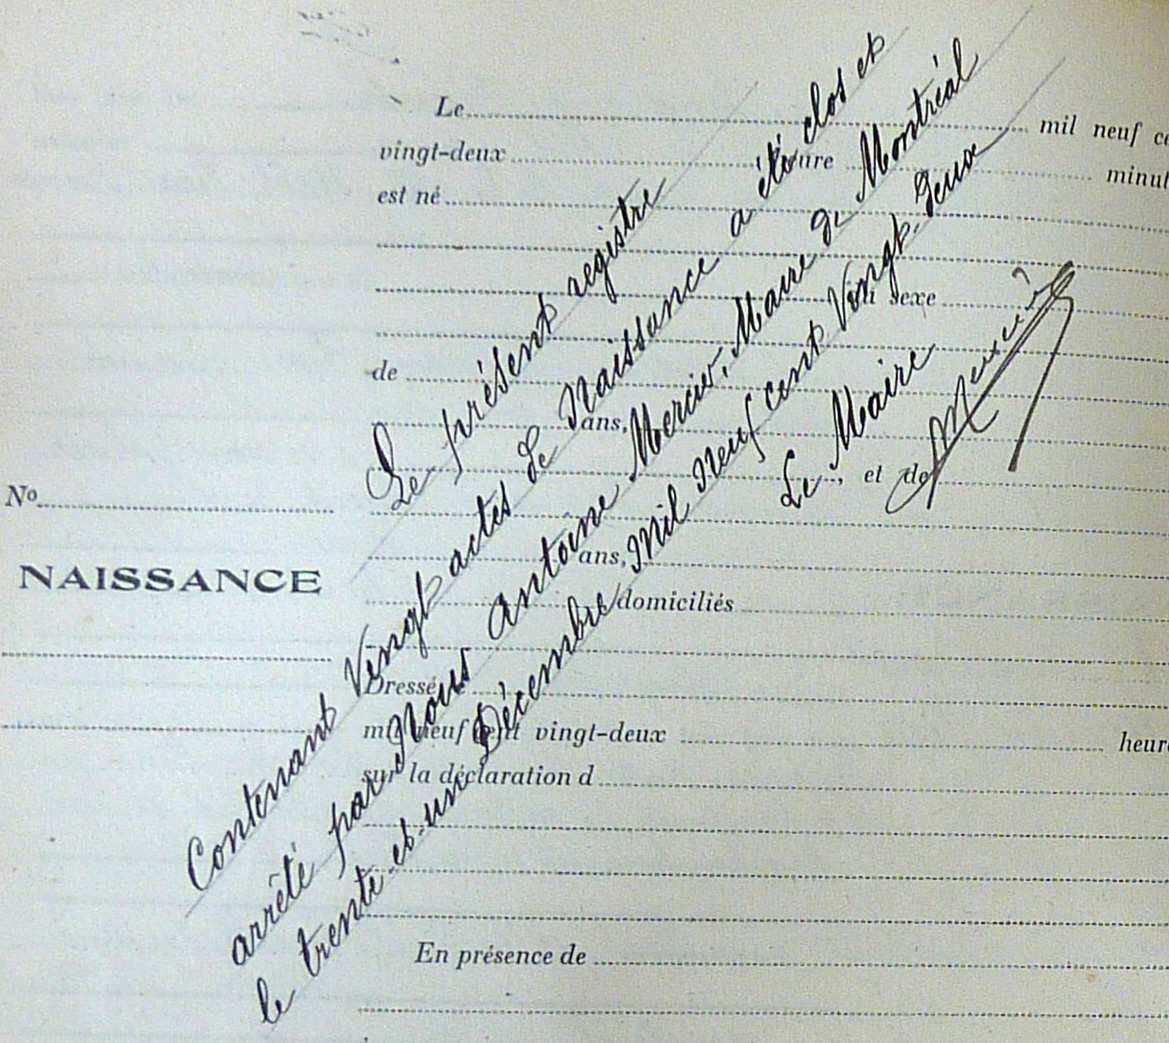 Le mil neuf ce
vingt-deux heure minut
est né
du sexe
de
ans,
, et de
ans,
domiciliés
Dressé le
mil neuf cent vingt-deux heure
sur la déclaration d
En présence de
No
NAISSANCE
Le présent registre
Contenant Vingt actes de Naissance a été clos et
arrêté par Nous Antoine Mercier, Maire de Montréal
le trente-et-un Décembre Mil Neuf cent Vingt-Deux
Le Maire